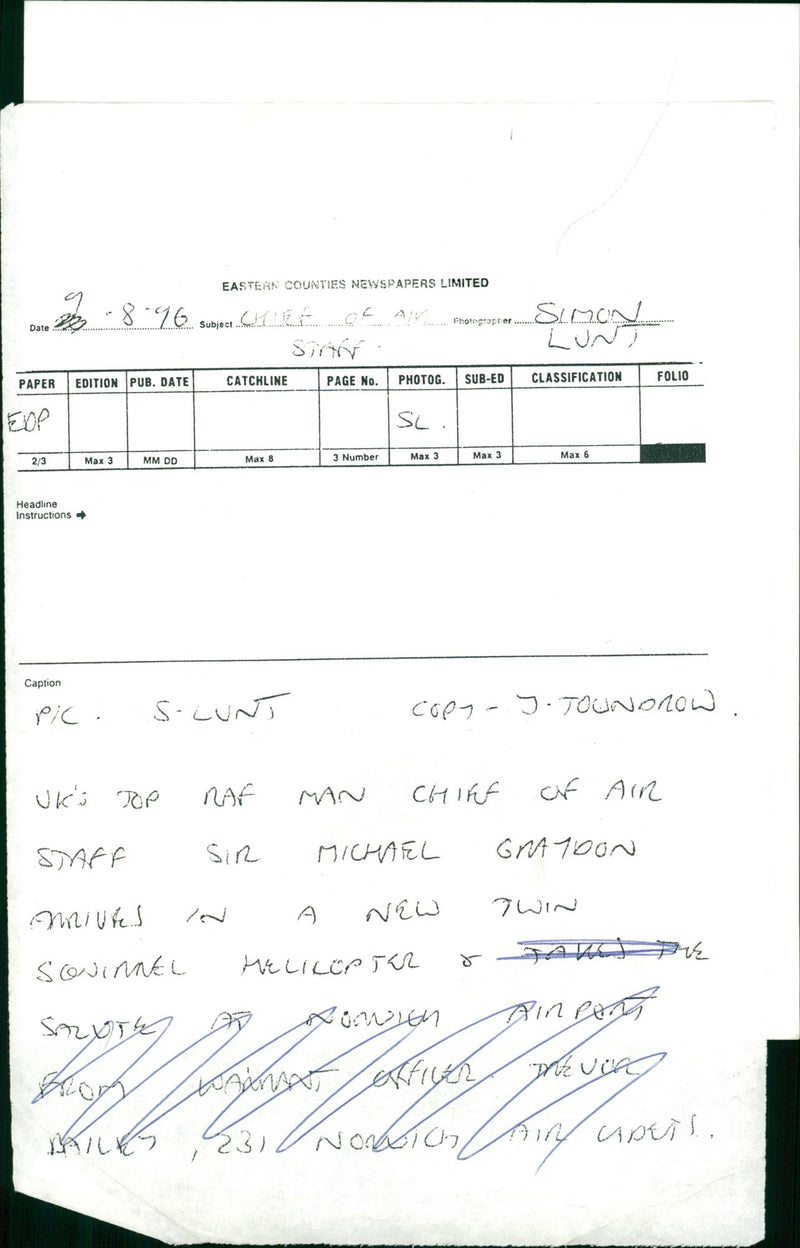 EASTERN COUNTIES NEWSPAPERS LIMITED
Date 9 -8-96 Subject CHIEF OF AIR STAFF. Photographer SIMON LUNT
PAPER EDITION PUB. DATE CATCHLINE PAGE No. PHOTOG. SUB-ED CLASSIFICATION FOLIO
EDP SL.
2/3 Max 3 MM DD Max 8 3 Number Max 3 Max 3 Max 6
Headline
Instructions →
Caption
PIC. S-LUNT COPY - J. TOUNDROW.
UK'S TOP RAF MAN CHIEF OF AIR
STAFF SIR MICHAEL GRAYDON
ARRIVES IN A NEW TWIN
SQUIRREL HELICOPTER & TAKES THE
SALUTE AT NORWICH AIRPORT
FROM WARRANT OFFICER TREVOR
BAILEY, 231 NORWICH AIR CADETS.